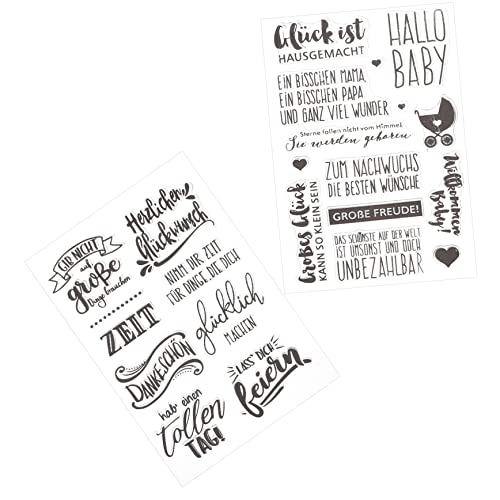 Glück ist
HAUSGEMACHT
HALLO
BABY
EIN BISSCHEN MAMA,
EIN BISSCHEN PAPA
UND GANZ VIEL WUNDER
Sterne fallen nicht vom Himmel,
Sie werden geboren
Großes Glück
KANN SO KLEIN SEIN
ZUM NACHWUCHS
DIE BESTEN WÜNSCHE
GROßE FREUDE!
DAS SCHÖNSTE AUF DER WELT
IST UMSONST UND DOCH
UNBEZAHLBAR
Willkommen
Baby!
GIB NICHT
auf
große
Dinge brauchen
Herzlichen
Glückwunsch
NIMM DIR ZEIT
FÜR DINGE, DIE DICH
glücklich
MACHEN
ZEIT
DANKESCHÖN
LASS' DICH
feiern
hab' einen
tollen
TAG!